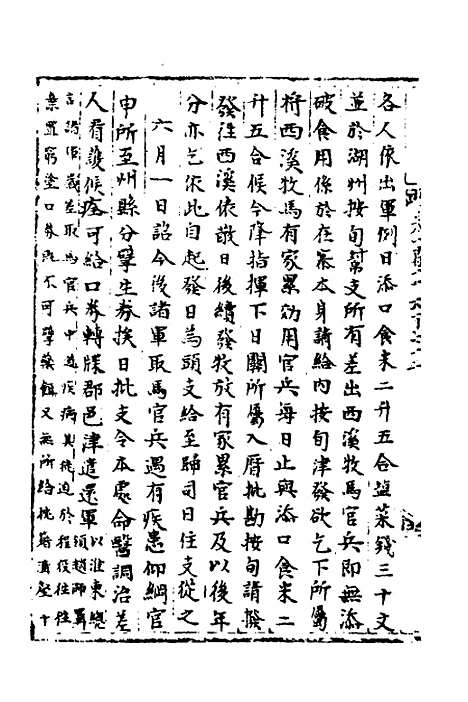 各人依出軍例日添口食米二升五合鹽菜錢三十文
並於湖州按旬幫支所有差出西溪牧馬官兵即無添
破食用係於在寨本身請給內按旬津發欲乞下所屬
將西溪牧馬有家累効用官兵每日止與添口食米二
升五合候今降指揮下日關所屬入曆批勘按旬請撥
發往西溪依散日後續發牧放有家累官兵及以後年
分亦乞依此自起發日為頭支給至歸司日住支從之
六月一日詔今後諸軍取馬官兵遇有疾患仰綱官
申所至州縣分擘生券挨日批支令本處命醫調治差
人看護候痊可給口券轉牒郡邑津遣還軍以淮東總領趙師
言諸軍歲差取馬官兵中道疾病其徒迫於程役往往
棄置窮塗口券既不可擘藥餌又無所給抗路溝壑十